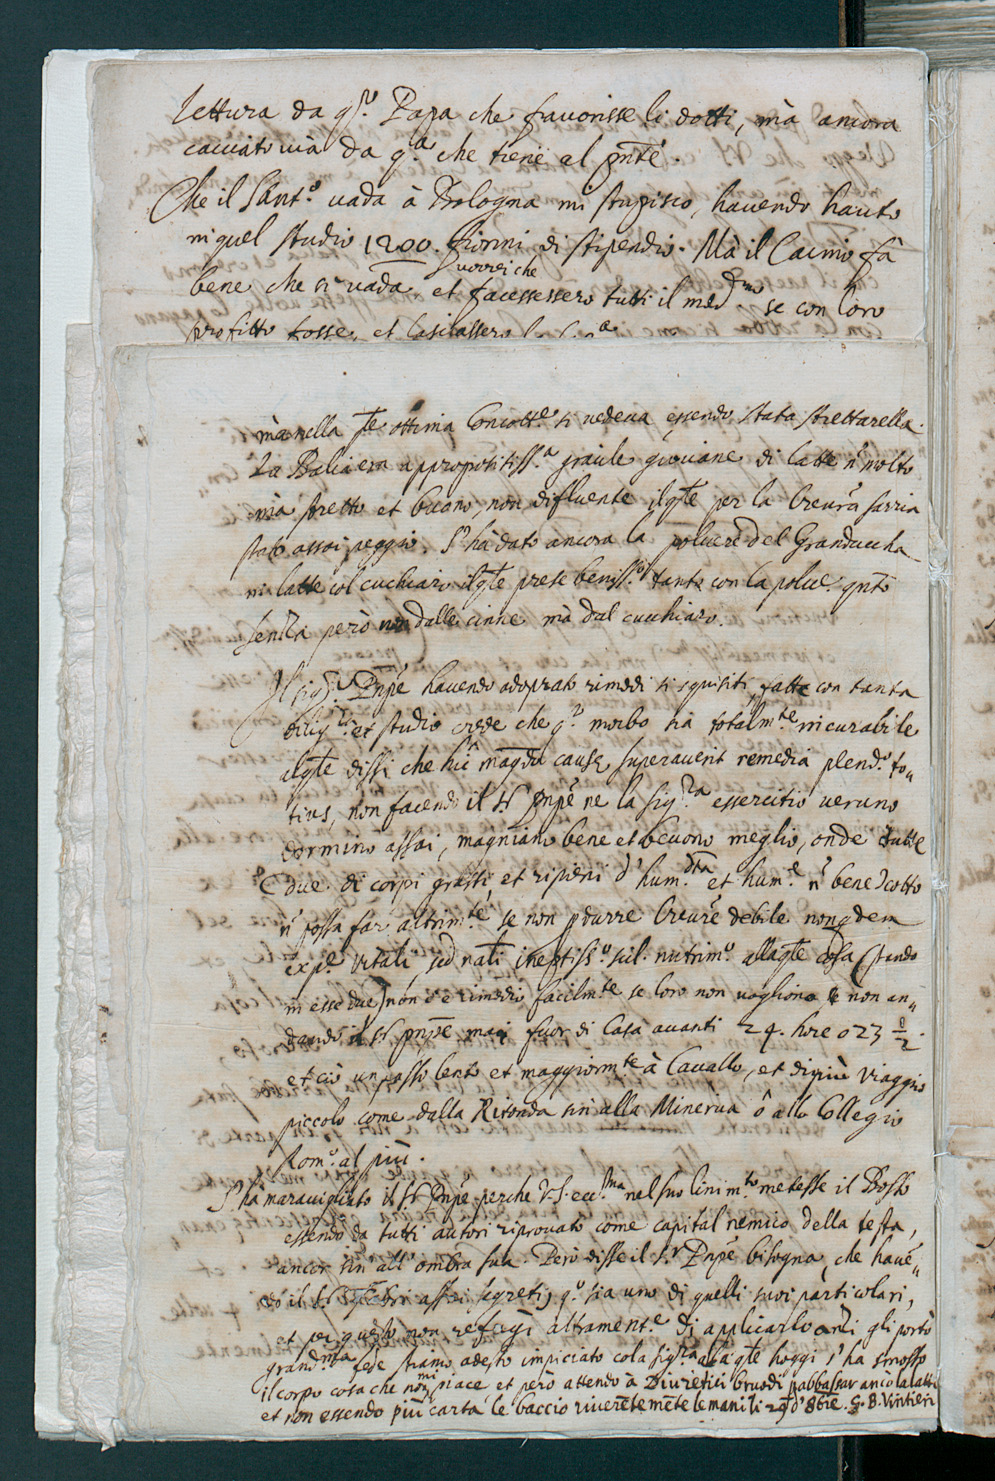 lettura da q.sto Papa che favorisse li dotti, mà ancora
cacciato via da q.a che tiene al pnte.
Che il Sant.o vada à Bologna mi stupisco, havendo hauto
in quel studio 1200. fiorini di stipendio. Mà il Caimo fà
vorrei che
bene che si vada et facessero tutti il med.mo se con loro
profitto fosse, et lasciassero
mà nella qte ottima si vedeva essendo stata strettarella.
La Balia era appropositiss.a gracile giovane di latte nõ molto
mà stretto et buono, non difluente ilqte per la creatura sarria
stato assai peggio. S'hà dato ancora la polvere del Granduccha
in latte col cuchiaro ilqte prese beniss.o tanto con la polve. qnto
senza però non dalle cinne mà dal cucchiaro.
Il sig.r Pnpe havendo adoprato rimedi si squisiti, fatte con tanta
dilig.tia et studio crede che q.o morbo sia totalm.te incurabile
alqte dissi che magnitudo causæ superaverit remedia to-
tius, non facendo il Sr Pnpe ne la Sig.ra essercitio veruno
dormino assai, magniano bene et bevono meglio, onde tutte
due di corpi grassi, et ripieni d' hum.dta et hum.e nõ bene cotto
nõ possa far altrim.te se non pdurre creature debile non qdem
exp.e vitali sed nati ineptiss.o nutrim.o allaqte cosa (stando
in esse due) non c'è rimedio facilm.te se loro non vogliono e non an-
dando il Sr pnpe mai fuor di Casa avanti 24. hore o 23 1/2.
et ciò un passo lento et maggiorm.te à Cavallo, et di più viaggio
piccolo come dalla Ritonda sin alla Minerva ò allo Collegio
Rom.o al più.
S'ha maravigliato il Sr Pnpe perche V.S. ecc.ma nel suo linim.to metesse il Bosso
essendo da tutti autori riprovato come capital nemico della testa,
ancor sin all' ombra sula. Però disse il S.r Pnpe bisogna, che havẽ-
do il Sr assai segreti, q.o sia uno di quelli suoi particolari,
et per questo non refugi altrament.e di applicarlo anzi gli portò
grand.ma fede stiamo adesso impiciato cola sig.ra alla qte hoggi s'ha smosso
il corpo cosa che non mi piace et però attendo à Diuretici bruodi p abbassar ancò la latte
et non essendo più carta le baccio riverẽtemẽte le mani li 29 d' 8bre. G. B. Vintieri